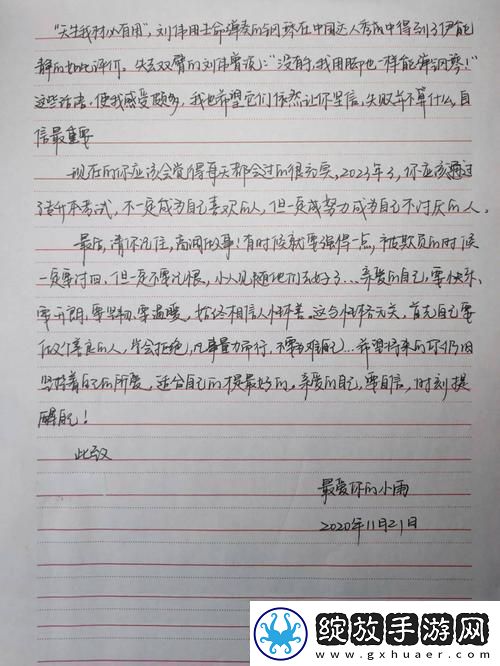 “天生我材必有用”，刘伟用生命弹奏的钢琴在中国达人秀中得到了伊能
静的如此评价。失去双臂的刘伟曾说：“没有手，我用脚也一样能弹钢琴！”
这些话语，使我感受颇多，我也希望它们依然让你坚信，失败并不算什么，自
信最重要
现在的你应该会觉得每天都会过的很充实，2023年了，你应该通过
专升本考试，不一定成为自己喜欢的人，但一定成努力成为自己不讨厌的人。
最后，请你记住，高调做事！有时候就要强得一点，被欺负的时候
一定要讨回，但一定不要记恨，小人见随他们去好了…亲爱的自己，要快乐、
要开朗、要坚韧、要温暖，始终相信人性本善。这与性格无关，首先自己要
做个善良的人，学会拒绝，凡事量力而行，不要为难自己…希望将来的你仍旧
坚持着自己的所爱，适合自己的才是最好的。亲爱的自己，要自信，时刻提
醒自己！
此致
最爱你的小雨
2020年11月21日
绽放手游网
www.gxhuaer.com